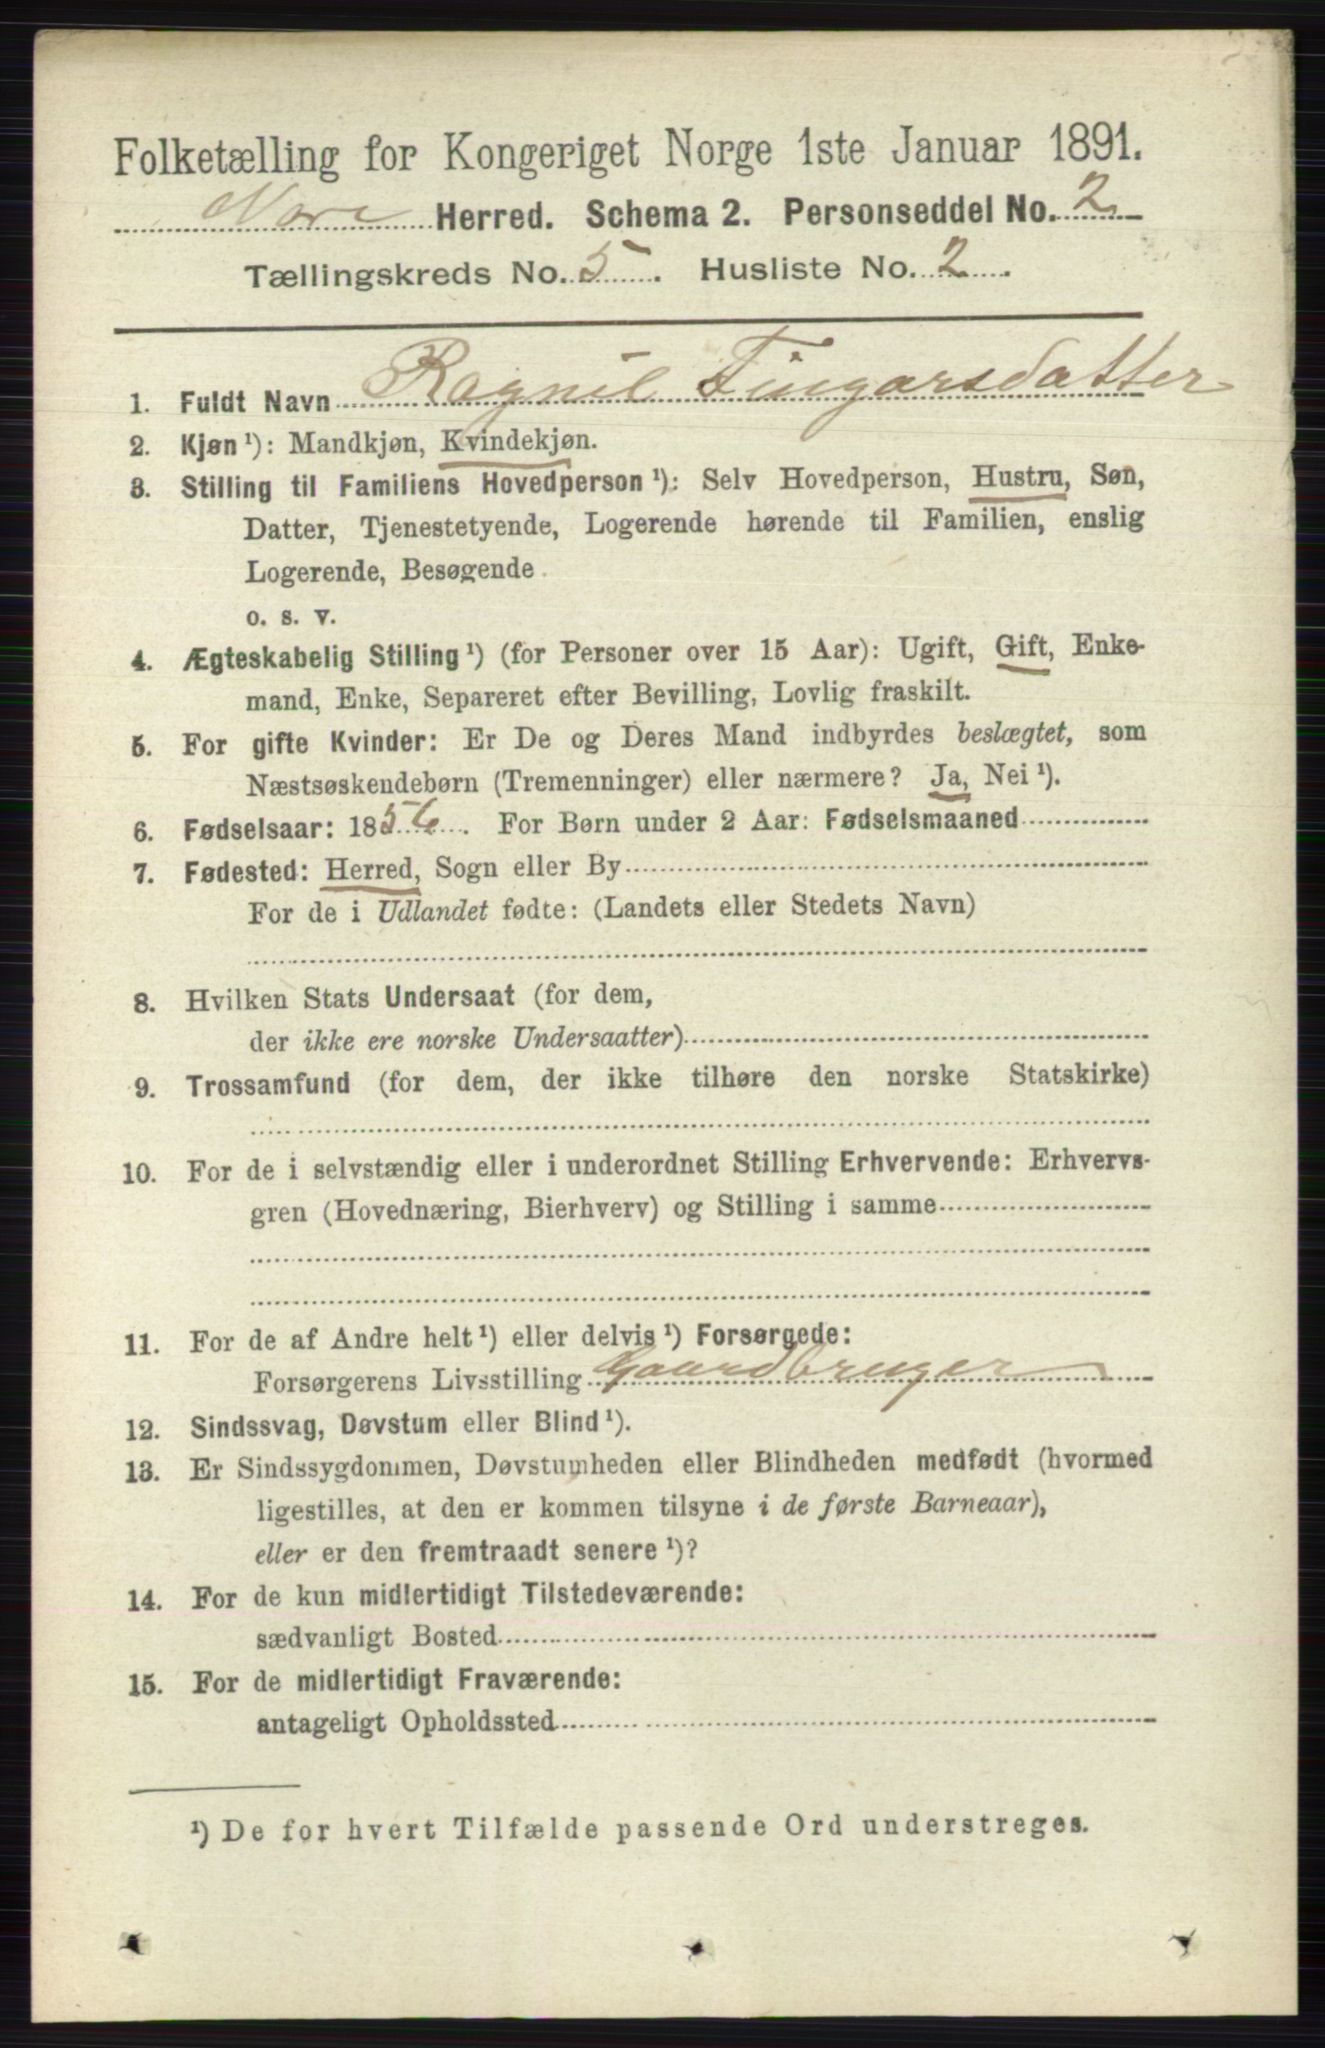 Folketælling for Kongeriget Norge 1ste Januar 1891.
Nore Herred. Schema 2. Personseddel No. 2
Tællingskreds No. 5. Husliste No. 2.
1. Fuldt Navn Ragnil Fingarsdatter
2. Kjøn ¹): Mandkjøn, Kvindekjøn.
3. Stilling til Familiens Hovedperson ¹): Selv Hovedperson, Hustru, Søn,
Datter, Tjenestetyende, Logerende hørende til Familien, enslig
Logerende, Besøgende
o. s. v.
4. Ægteskabelig Stilling ¹) (for Personer over 15 Aar): Ugift, Gift, Enke-
mand, Enke, Separeret efter Bevilling, Lovlig fraskilt.
5. For gifte Kvinder: Er De og Deres Mand indbyrdes beslægtet, som
Næstsøskendebørn (Tremenninger) eller nærmere? Ja, Nei ¹).
6. Fødselsaar: 1856. For Børn under 2 Aar: Fødselsmaaned
7. Fødested: Herred, Sogn eller By
For de i Udlandet fødte: (Landets eller Stedets Navn)
8. Hvilken Stats Undersaat (for dem,
der ikke ere norske Undersaatter)
9. Trossamfund (for dem, der ikke tilhøre den norske Statskirke)
10. For de i selvstændig eller i underordnet Stilling Erhvervende: Erhvervs-
gren (Hovednæring, Bierhverv) og Stilling i samme
11. For de af Andre helt ¹) eller delvis ¹) Forsørgede:
Forsørgerens Livsstilling Gaardbruger
12. Sindssvag, Døvstum eller Blind ¹).
13. Er Sindssygdommen, Døvstumheden eller Blindheden medfødt (hvormed
ligestilles, at den er kommen tilsyne i de første Barneaar),
eller er den fremtraadt senere ¹)?
14. For de kun midlertidigt Tilstedeværende:
sædvanligt Bosted
15. For de midlertidigt Fraværende:
antageligt Opholdssted
¹) De for hvert Tilfælde passende Ord understreges.